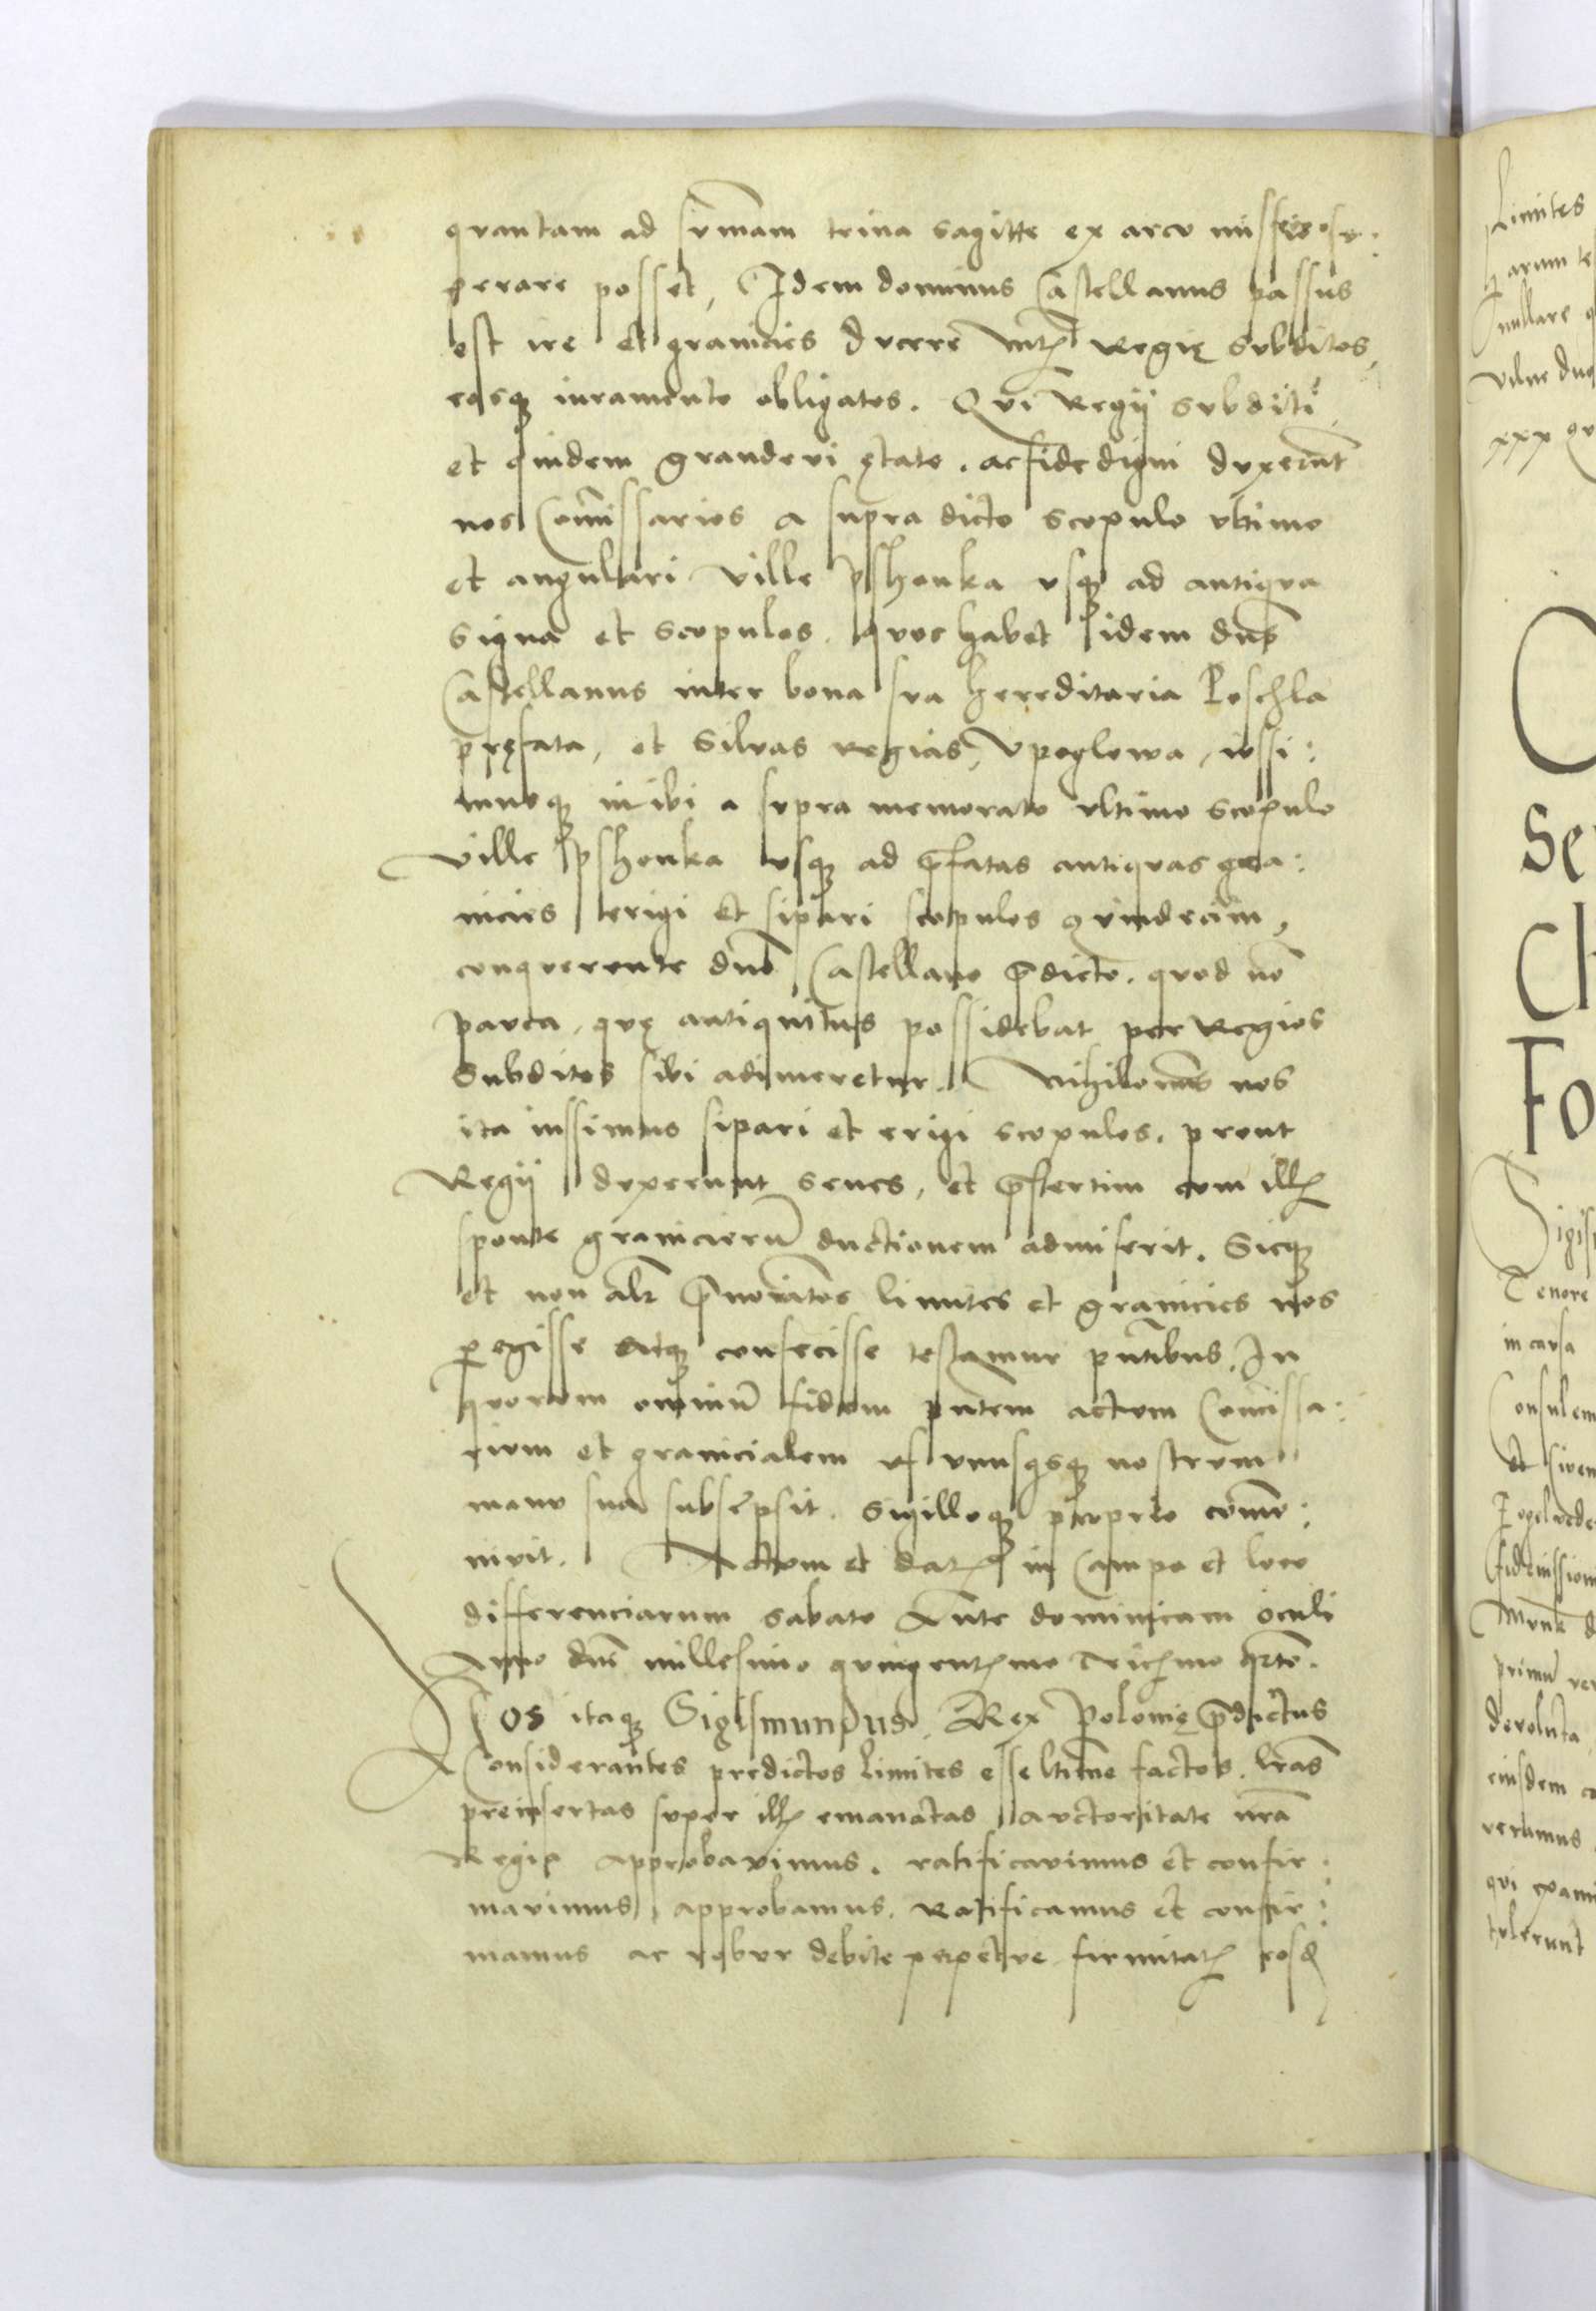 quantam ad sumam trina sagitte ex arcu missio su:
perare posset, Idem dominus Castellanus passus
est ire et granicies ducere Mtis Regię subditos,
eosq iuramento obligatos. Qui Regij subditi
et quidem grandevi ętate. ac fide digni duxerunt
nos Comissarios a supra dicto scopulo ultimo
et angulari ville Pshonka usq ad antiqua
signa et scopulos. quos habet idem dns
Castellanus inter bona sua hereditaria Loschla
pręfata, et silvas regias, Upoglowa, iussi:
musq inibi a supra memorato ultimo scopulo
ville Pshonka usq ad pfatas antiquas gra:
nicies erigi et sipari scopulos quindecim,
conquerente dno Castellano pdicto. quod no
pauca, quę antiquitus possidebat per Regios
Subditos sibi adimeretur. Nihilomis nos
ita iussimus sipari et erigi scopulos. prout
Regij duxerunt senes, et psertim cum illis
sponte granicierū ductionem admiserit. Sicq
et non alr pnoiatos limites et granicies nos
pegisse atq confecisse testamur pntibus. In
quorum omniū fidem pntem actum Comissa:
rium et granicialem unusqsq nostrum
manu sua subscpsit. sigilloq proprio comu:
nivit. Actum et datis in Campo et loco
differenciarum sabato Ante dominicam oculi
Anno dni millesimo quingentesimo Tricesimo qrto.
Nos itaq Sigismundus. Rex Polonię pdictus
Considerantes predictos limites esse ltime factos. lras
preinsertas super illis emanatas auctoritate nra
Regia approbavimus. ratificavimus et confir:
mavimus, approbamus. Ratificamus et confir:
mamus ac robur debite perpetue firmitatis eosd

Limites
harum
nullare
xxx
Se
Ch
Fo
Sigis
Tenore
in causa
Consulem
et
primu
devoluta
eiusdem
veramus
qui exami
tulerunt